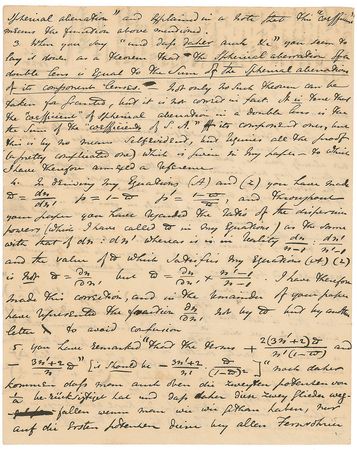 spherical aberration" and explained in a note that the "coefficient"
means the function above mentioned.
3. When you say "und dass daher auch &c" you seem to
lay it down as a theorem that "the spherical aberration of a
double lens is equal to the Sum of the spherical aberrations
of its component lenses." Not only no such theorem can be
taken for granted, but it is not correct in fact. It is true that
the "coefficient" of spherical aberration in a double lens is the
the Sum of the "coefficients of S.A." of its component ones, but
this is by no means selfevident, and requires all the proof
(a pretty complicated one) which is given in my paper – to which
I have therefore a reference.
4. In deriving my Equations (A) and (z) you have made
and throughout
your paper you have regarded the ratio of the dispersive
powers (which I have called ϖ in my Equations) as the same
with that of dn : dn' whereas is in reality dn/n-1 : dn'/n'-1
and the value of ϖ which satisfies my Equations (A) (z)
is not ϖ = dn/dn' but ϖ = dn/dn' × n'-1/n-1. I have therefore
made this correction, and in the remainder of your paper
have represented the fraction dn/dn' not by ϖ but by another
letter to avoid confusion
5. you have remarked "that the terms + 2(3n'+2)ϖ/n'(1-ϖ) and
- 3n'+2/n' ϖ" [it should be - 3n'+2/n' · ϖ/(1-ϖ)²] " nach daher
kommen dass man auch die zweyten potenzen von
1/a berücksichtigt hat und dass daher diese zwey Glieder weg-
fallen wenn man wie wir gethan haben, nur
auf die ersten potenzen diese bey allen Fernröhren